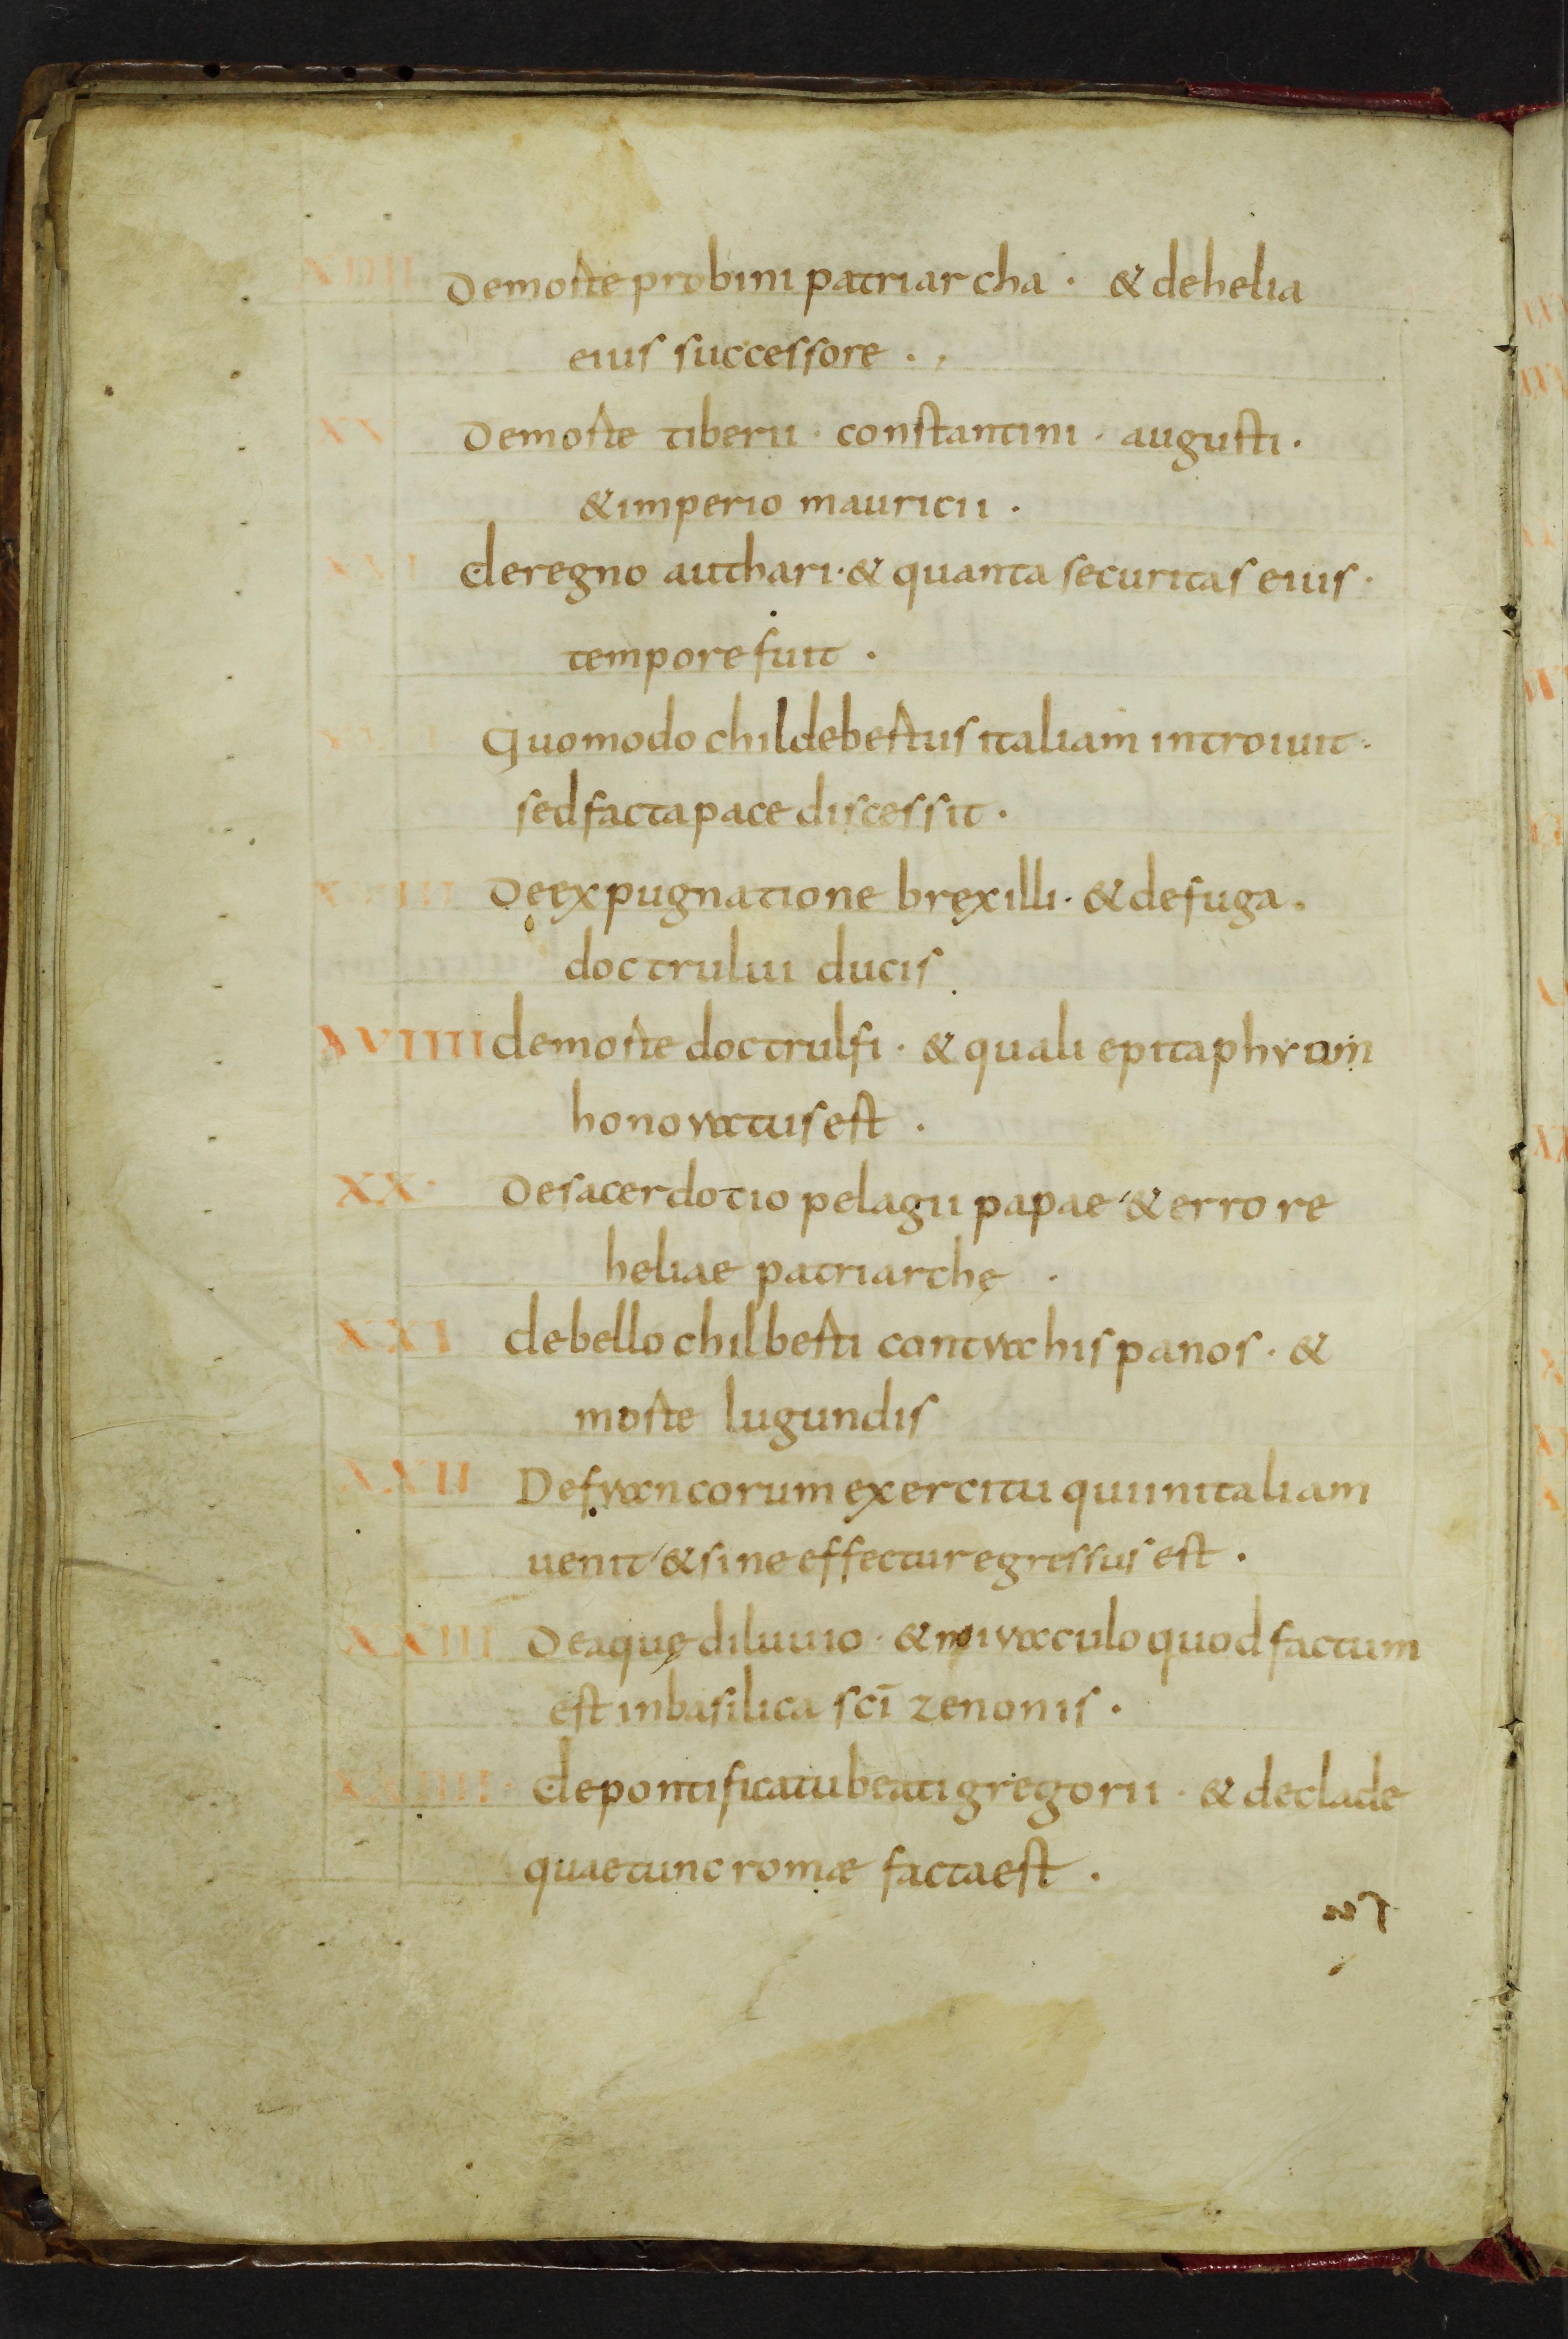 XIIII Demorte probini patriarcha · & dehelia
eius successore ·
XV Demorte tiberii · constantini · augusti ·
& imperio mauricii ·
XVI de regno authari · & quanta securitas eius ·
tempore fuit ·
Quomodo childebertus italiam introiuit ·
sed facta pace discessit ·
XVIII De expugnatione brexilli · & defuga ·
doctrului ducis
XVIIII de morte doctrulfi · & quali epitaphyum
honoratus est ·
XX · De sacerdotio pelagii papae & errore
heliae patriarchę ·
XXI de bello chilberti contra hispanos · &
morte Iugundis
XXII De francorum exercitu qui in italiam
uenit & sine effectu regressus est ·
XXIII De aquę diluuio · & miraculo quod factum
est in basilica scī zenonis ·
XXIIII · de pontificatu beati gregorii · & de clade
quae tunc romæ facta est ·